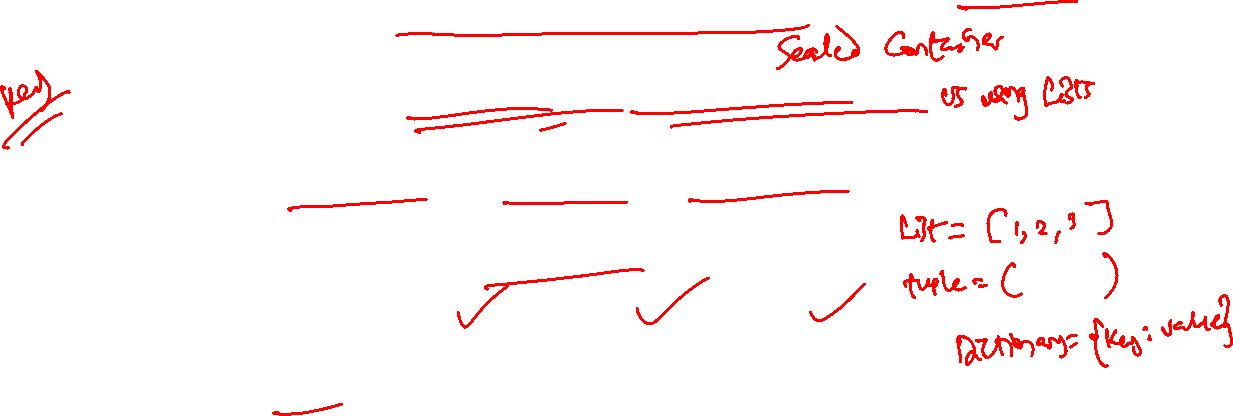 Sealed Container
vs using Lists
List = [1, 2, 3]
tuple = ( )
Dictionary = {key: value}